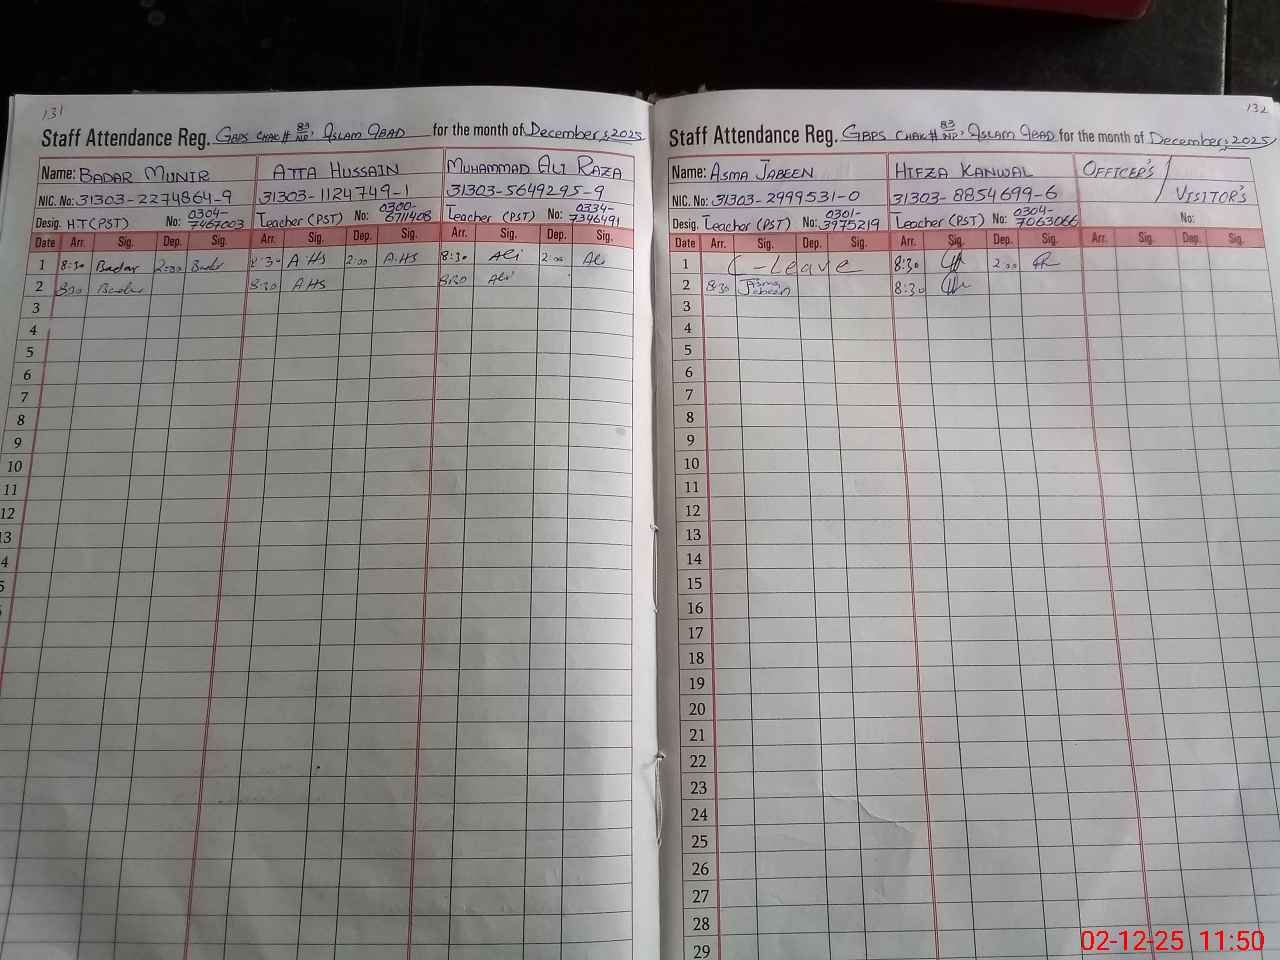 131
Staff Attendance Reg. GBPS CHAK# 83/NP, ISLAM ABAD for the month of December, 2025
Name: BADAR MUNIR ATTA HUSSAIN MUHAMMAD ALI RAZA
NIC. No: 31303-2274864-9 31303-1124749-1 31303-5649295-9
Desig. H.T (PST) No: 0304-7467003 Teacher (PST) No: 0300-6711408 Teacher (PST) No: 0334-7346491
Date Arr. Sig. Dep. Sig. Arr. Sig. Dep. Sig. Arr. Sig. Dep. Sig.
1 8:30 Badar 2:00 Badar 8:30 A.HS 2:00 A.HS 8:30 Ali 2:00 Ali
2 8:30 Badar 8:30 A.HS 8:30 Ali
3
4
5
6
7
8
9
10
11
12
13
4
5
132
Staff Attendance Reg. GBPS CHAK# 83/NP, ISLAM ABAD for the month of December, 2025
Name: ASMA JABEEN HIFZA KANWAL OFFICER'S / VISITOR'S
NIC. No: 31303-2999531-0 31303-8854699-6
Desig. Teacher (PST) No: 0301-3975219 Teacher (PST) No: 0304-7063066 No:
Date Arr. Sig. Dep. Sig. Arr. Sig. Dep. Sig. Arr. Sig. Dep. Sig.
1 C-Leave 8:30 2:00
2 8:30 Asma Jabeen 8:30
3
4
5
6
7
8
9
10
11
12
13
14
15
16
17
18
19
20
21
22
23
24
25
26
27
28
29
02-12-25 11:50